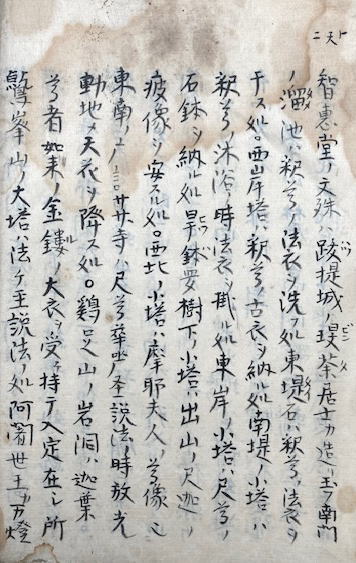 智惠堂ノ文殊ハ跋提城ノ瑅茶居士カ造玉フ南門
ノ溜池ハ釈尊ノ法衣ヲ洗フ処東堤石ハ釈尊ノ法衣ヲ
干ス処。西岸塔ハ釈尊ノ古衣ヲ納ル処南堤ノ小塔ハ
釈尊ノ沐浴ノ時法衣ヲ掛ル処東岸ノ小塔ハ尺尊ノ
石鉢ヲ納ル処畢鉢要樹下ノ小塔ハ出山ノ尺迦ノ
疲像ヲ安スル処。西北ノ小塔ハ摩耶夫人ノ尊像也
東南ノ
寺ハ尺尊
説法ノ時放光
動地〆天花ヲ降ス処。鶏足山ノ岩洞ハ迦葉
尊者如来ノ金鏤ノ大衣ヲ受ケ持テ入定在シ所
鷲峯山ノ大塔ハ法ケ主説法ノ処阿闍世王ノ万燈